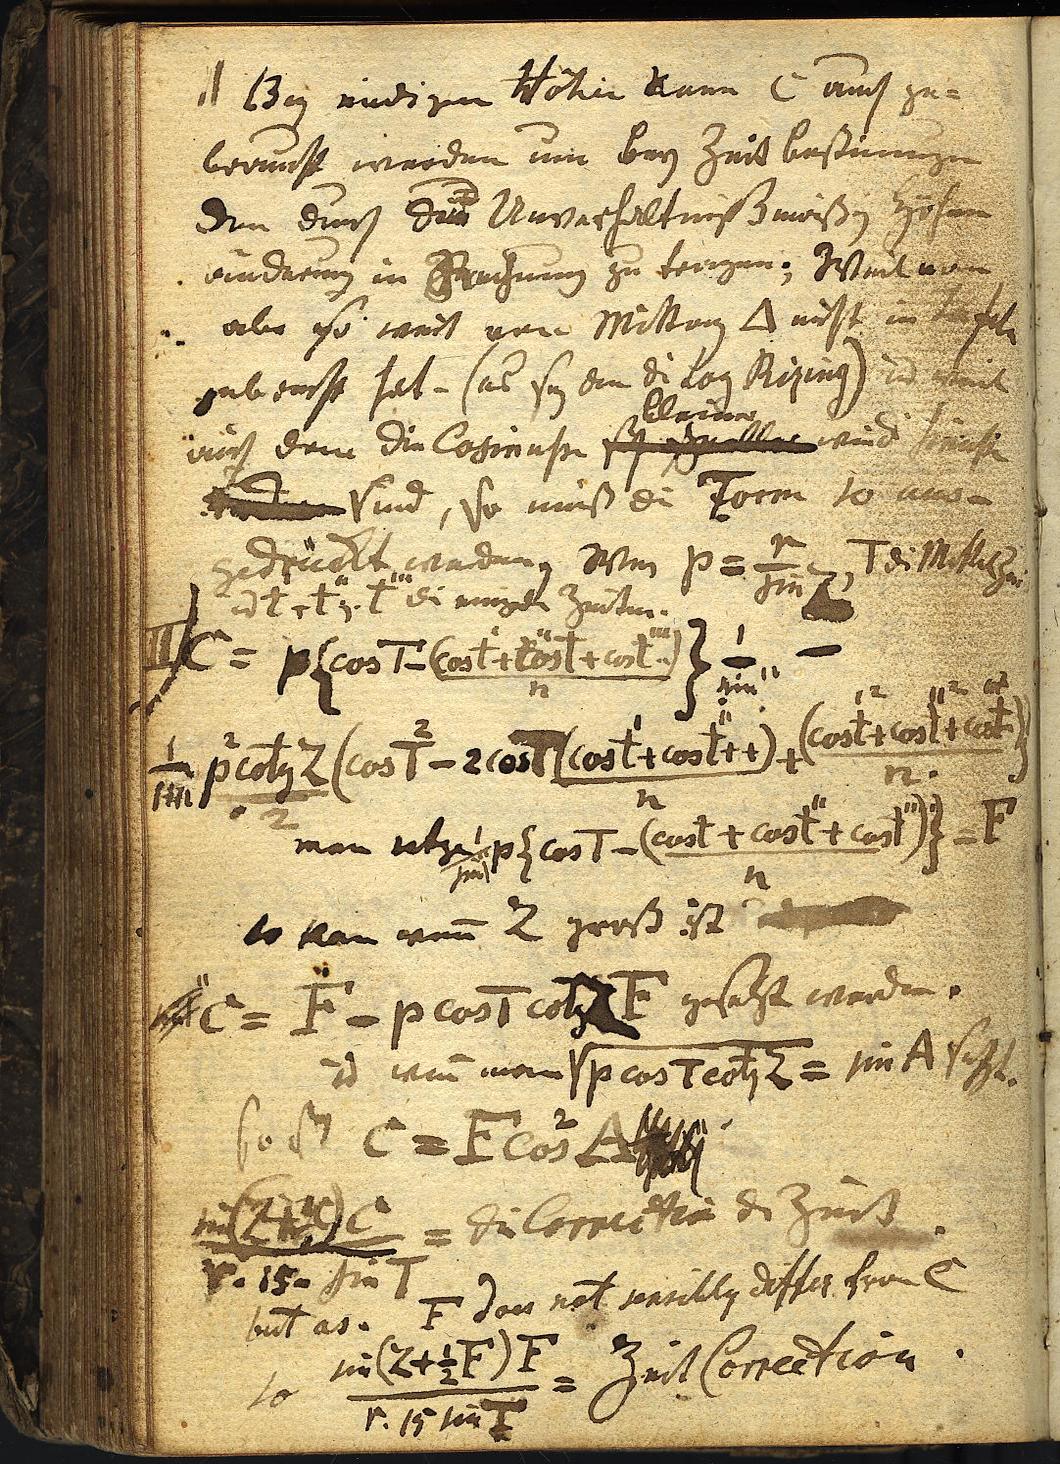 II Bey niedigen Höhen kann C auch ge=
braucht werden um bey Zeit bestimmungen
den durch die Unverhältnißmäßige Höhen
änderung in Rechnung zu bringen; Weil man
aber so weit von Mittag Δ nicht in Tafeln
gebracht hat - (als die Log Rising) und weil
auch denn die Cosinusse kleiner
sind, so muß die Form so aus-
gedrückt werden, Wenn p = r/sin Z, T die Mittelzeit
und t', t'', t''' die einzeln Zeiten.
II C = p{cosT - (cost' + cost'' + cost''')/n} 1/sin 1'' -
1/sin 1'' p² cotg Z/2 (cosT² - 2cosT (cost' + cost'' ++)/n + (cost'² + cost''² + cost'''²)/n)
man setze 1/sin 1'' p{cosT - (cost' + cost'' + cost''')/n} = F
so kan wen̄ Z groß ist
C = F - p cosT cotg Z F gesetzt werden.
und wen̄ man √p cosT cotg Z = sin A setzt.
so ist C = F cos² A
sin(Z + ½C) C / r. 15. sin T = die Correction der Zeit
but as F does not sensibly differ from C
so sin(Z + ½F) F / r. 15 sin T = Zeit Correction.